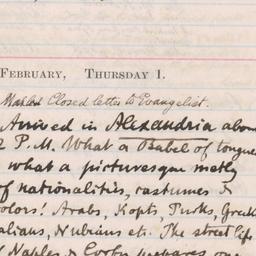 FEBRUARY, THURSDAY 1.
Closed letter to Evangelist.
Arrived in Alexandria about
2 P.M. What a Babel of tongues
what a picturesque metly
of nationalities, costumes &
colors! Arabs, Kopts, Turks, Greeks
alians, Nubians etc. The street life
Naples & Corfu prepares one